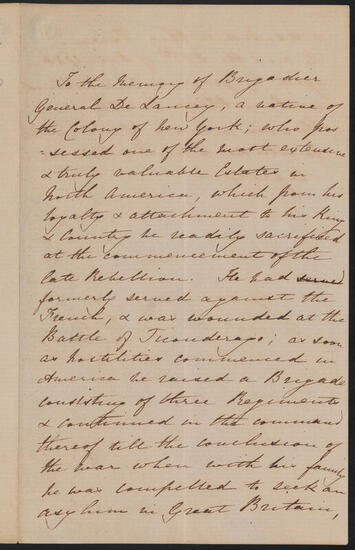 To the Memory of Brigadier
General De Lancey, a native of
the Colony of New York; who pos
=sessed one of the most extensive
& truly valuable Estates in
North America, which from his
loyalty & attachment to his King
& Country he readily sacrificed
at the commencement of the
late Rebellion. He had served
formerly served against the
French, & was wounded at the
Battle of Ticonderago; as soon
as hostilities commenced in
America he raised a Brigade
consisting of three Regiments
& continued in the command
thereof till the conclusion of
the war when with his family
he was compelled to seek an
asylum in Great Britain,